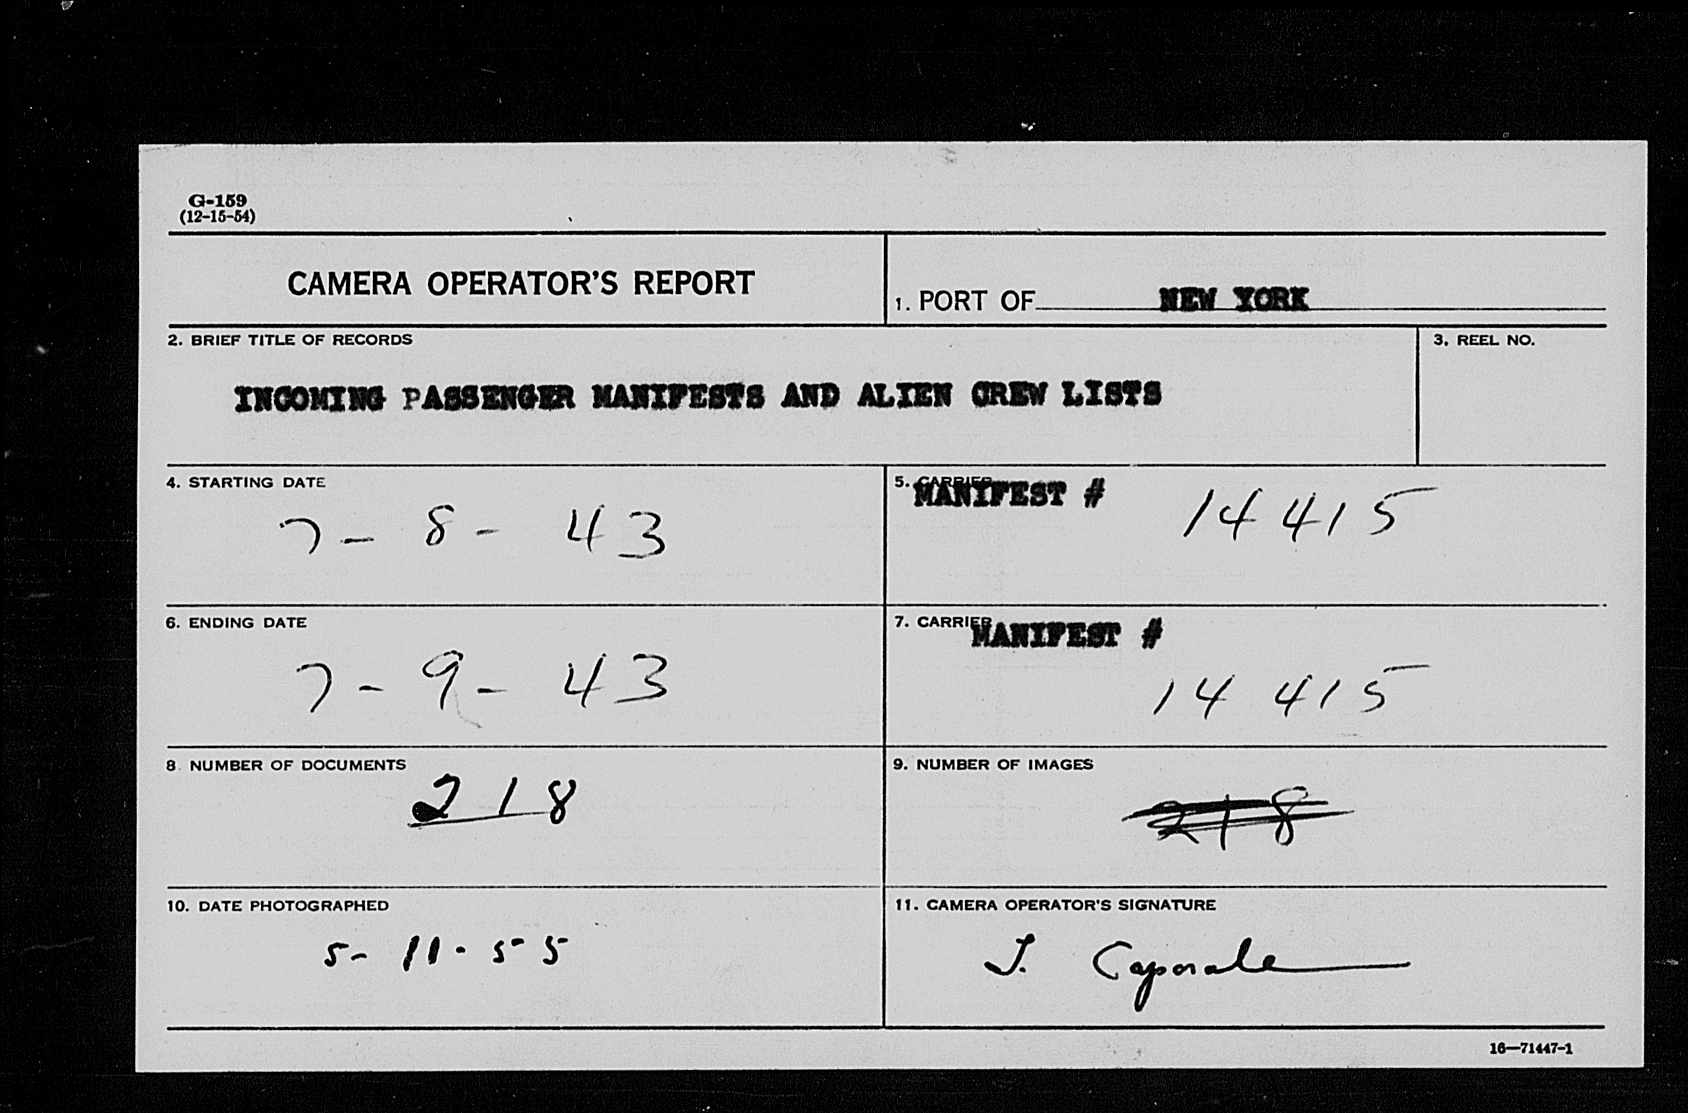 G-159
(12-15-54)
CAMERA OPERATOR'S REPORT
1. PORT OF NEW YORK
2. BRIEF TITLE OF RECORDS
INCOMING PASSENGER MANIFESTS AND ALIEN CREW LISTS
3. REEL NO.
4. STARTING DATE
7-8-43
5. CARRIER
MANIFEST # 14415
6. ENDING DATE
7-9-43
7. CARRIER
MANIFEST #
14415
8 NUMBER OF DOCUMENTS
218
9. NUMBER OF IMAGES
218
10. DATE PHOTOGRAPHED
5-11-55
11. CAMERA OPERATOR'S SIGNATURE
J. Caporale
16—71447-1